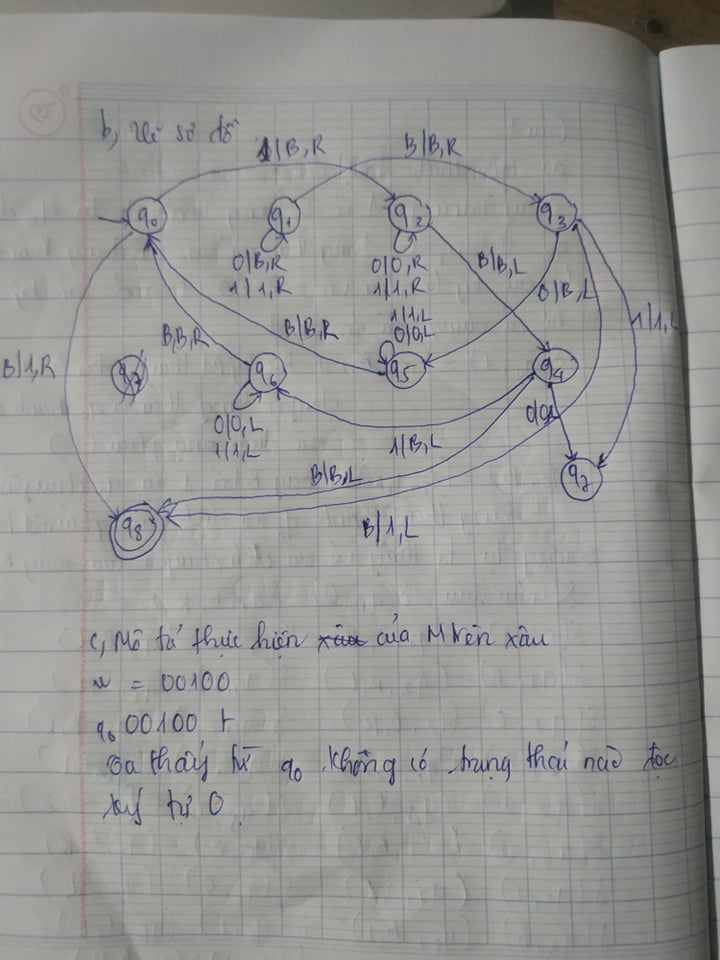 b, Vẽ sơ đồ
1|B,R
B|B,R
q0
q1
q2
q3
0|B,R
1|1,R
0|0,R
1|1,R
B|B,L
0|B,L
1|1,L
1|1,L
0|0,L
B|1,R
B,B,R
B|B,R
q6
q5
q4
0|0,L
1|1,L
1|B,L
B|B,L
q7
q8
B|1,L
c, Mô tả thực hiện của M trên xâu
= 00100
q0 00100 ⊢
ta thấy từ q0 không có trạng thái nào đọc
ký tự 0